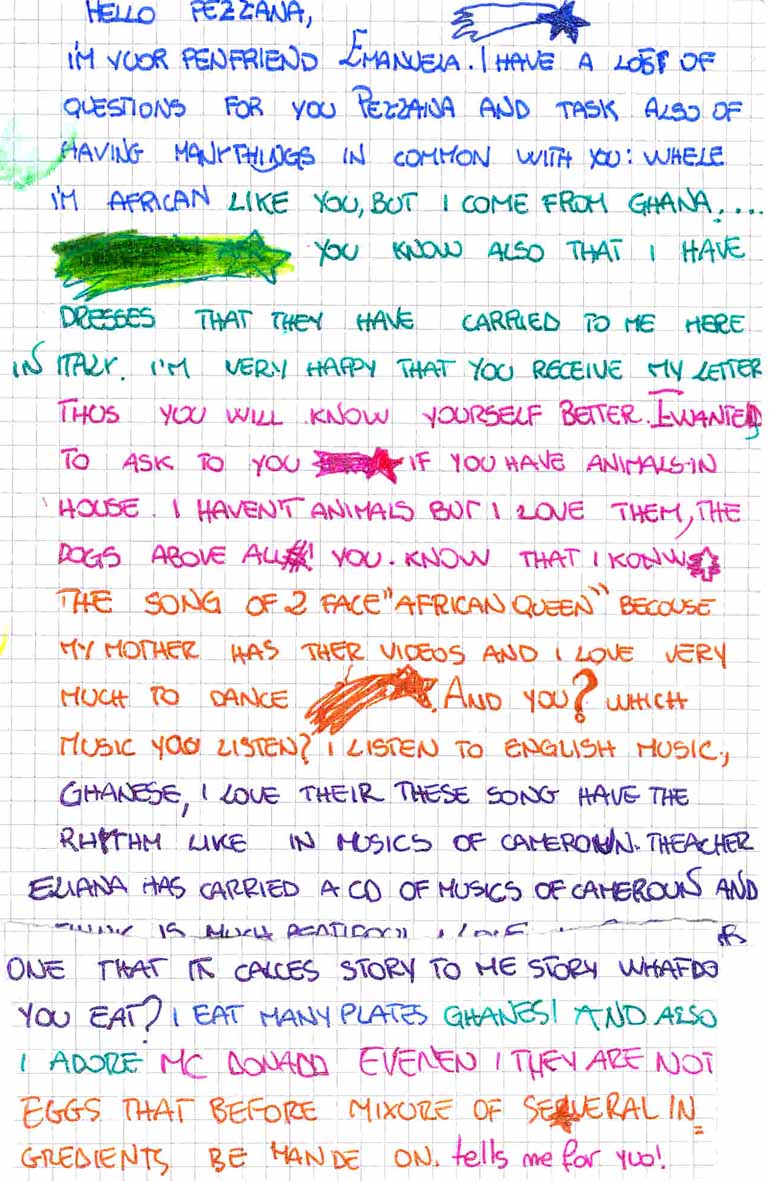 HELLO PEZZANA,
I'M YUOR PENFRIEND EMANUELA. I HAVE A LOST OF
QUESTIONS FOR YOU PEZZANA AND TASK ALSO OF
HAVING MANYTHINGS IN COMMON WITH YOU: WHELE
I'M AFRICAN LIKE YOU, BUT I COME FROM GHANA,...
YOU KNOW ALSO THAT I HAVE
DRESSES THAT THEY HAVE CARRIED TO ME HERE
IN ITALY. I'M VERY HAPPY THAT YOU RECEIVE MY LETTER
THUS YOU WILL KNOW YOURSELF BETTER. I WANTED
TO ASK TO YOU IF YOU HAVE ANIMALS IN
HOUSE. I HAVENT ANIMALS BUT I LOVE THEM, THE
DOGS ABOVE ALL! YOU. KNOW THAT I KONW
THE SONG OF 2 FACE "AFRICAN QUEEN" BECOUSE
MY MOTHER HAS THER VIDEOS AND I LOVE VERY
MUCH TO DANCE. AND YOU? WHICH
MUSIC YOU LISTEN? I LISTEN TO ENGLISH MUSIC,
GHANESE, I LOVE THEIR THESE SONG HAVE THE
RHYTHM LIKE IN MUSICS OF CAMEROUN. THEACHER
ELIANA HAS CARRIED A CD OF MUSICS OF CAMEROUN AND
IS MUCH
ONE THAT IT CALCES STORY TO ME STORY WHAT DO
YOU EAT? I EAT MANY PLATES GHANESI AND ALSO
I ADORE MC DONADD EVENEN I THEY ARE NOT
EGGS THAT BEFORE MIXURE OF SEVERAL IN=
GREDIENTS BE HANDE ON. tells me for yuo!